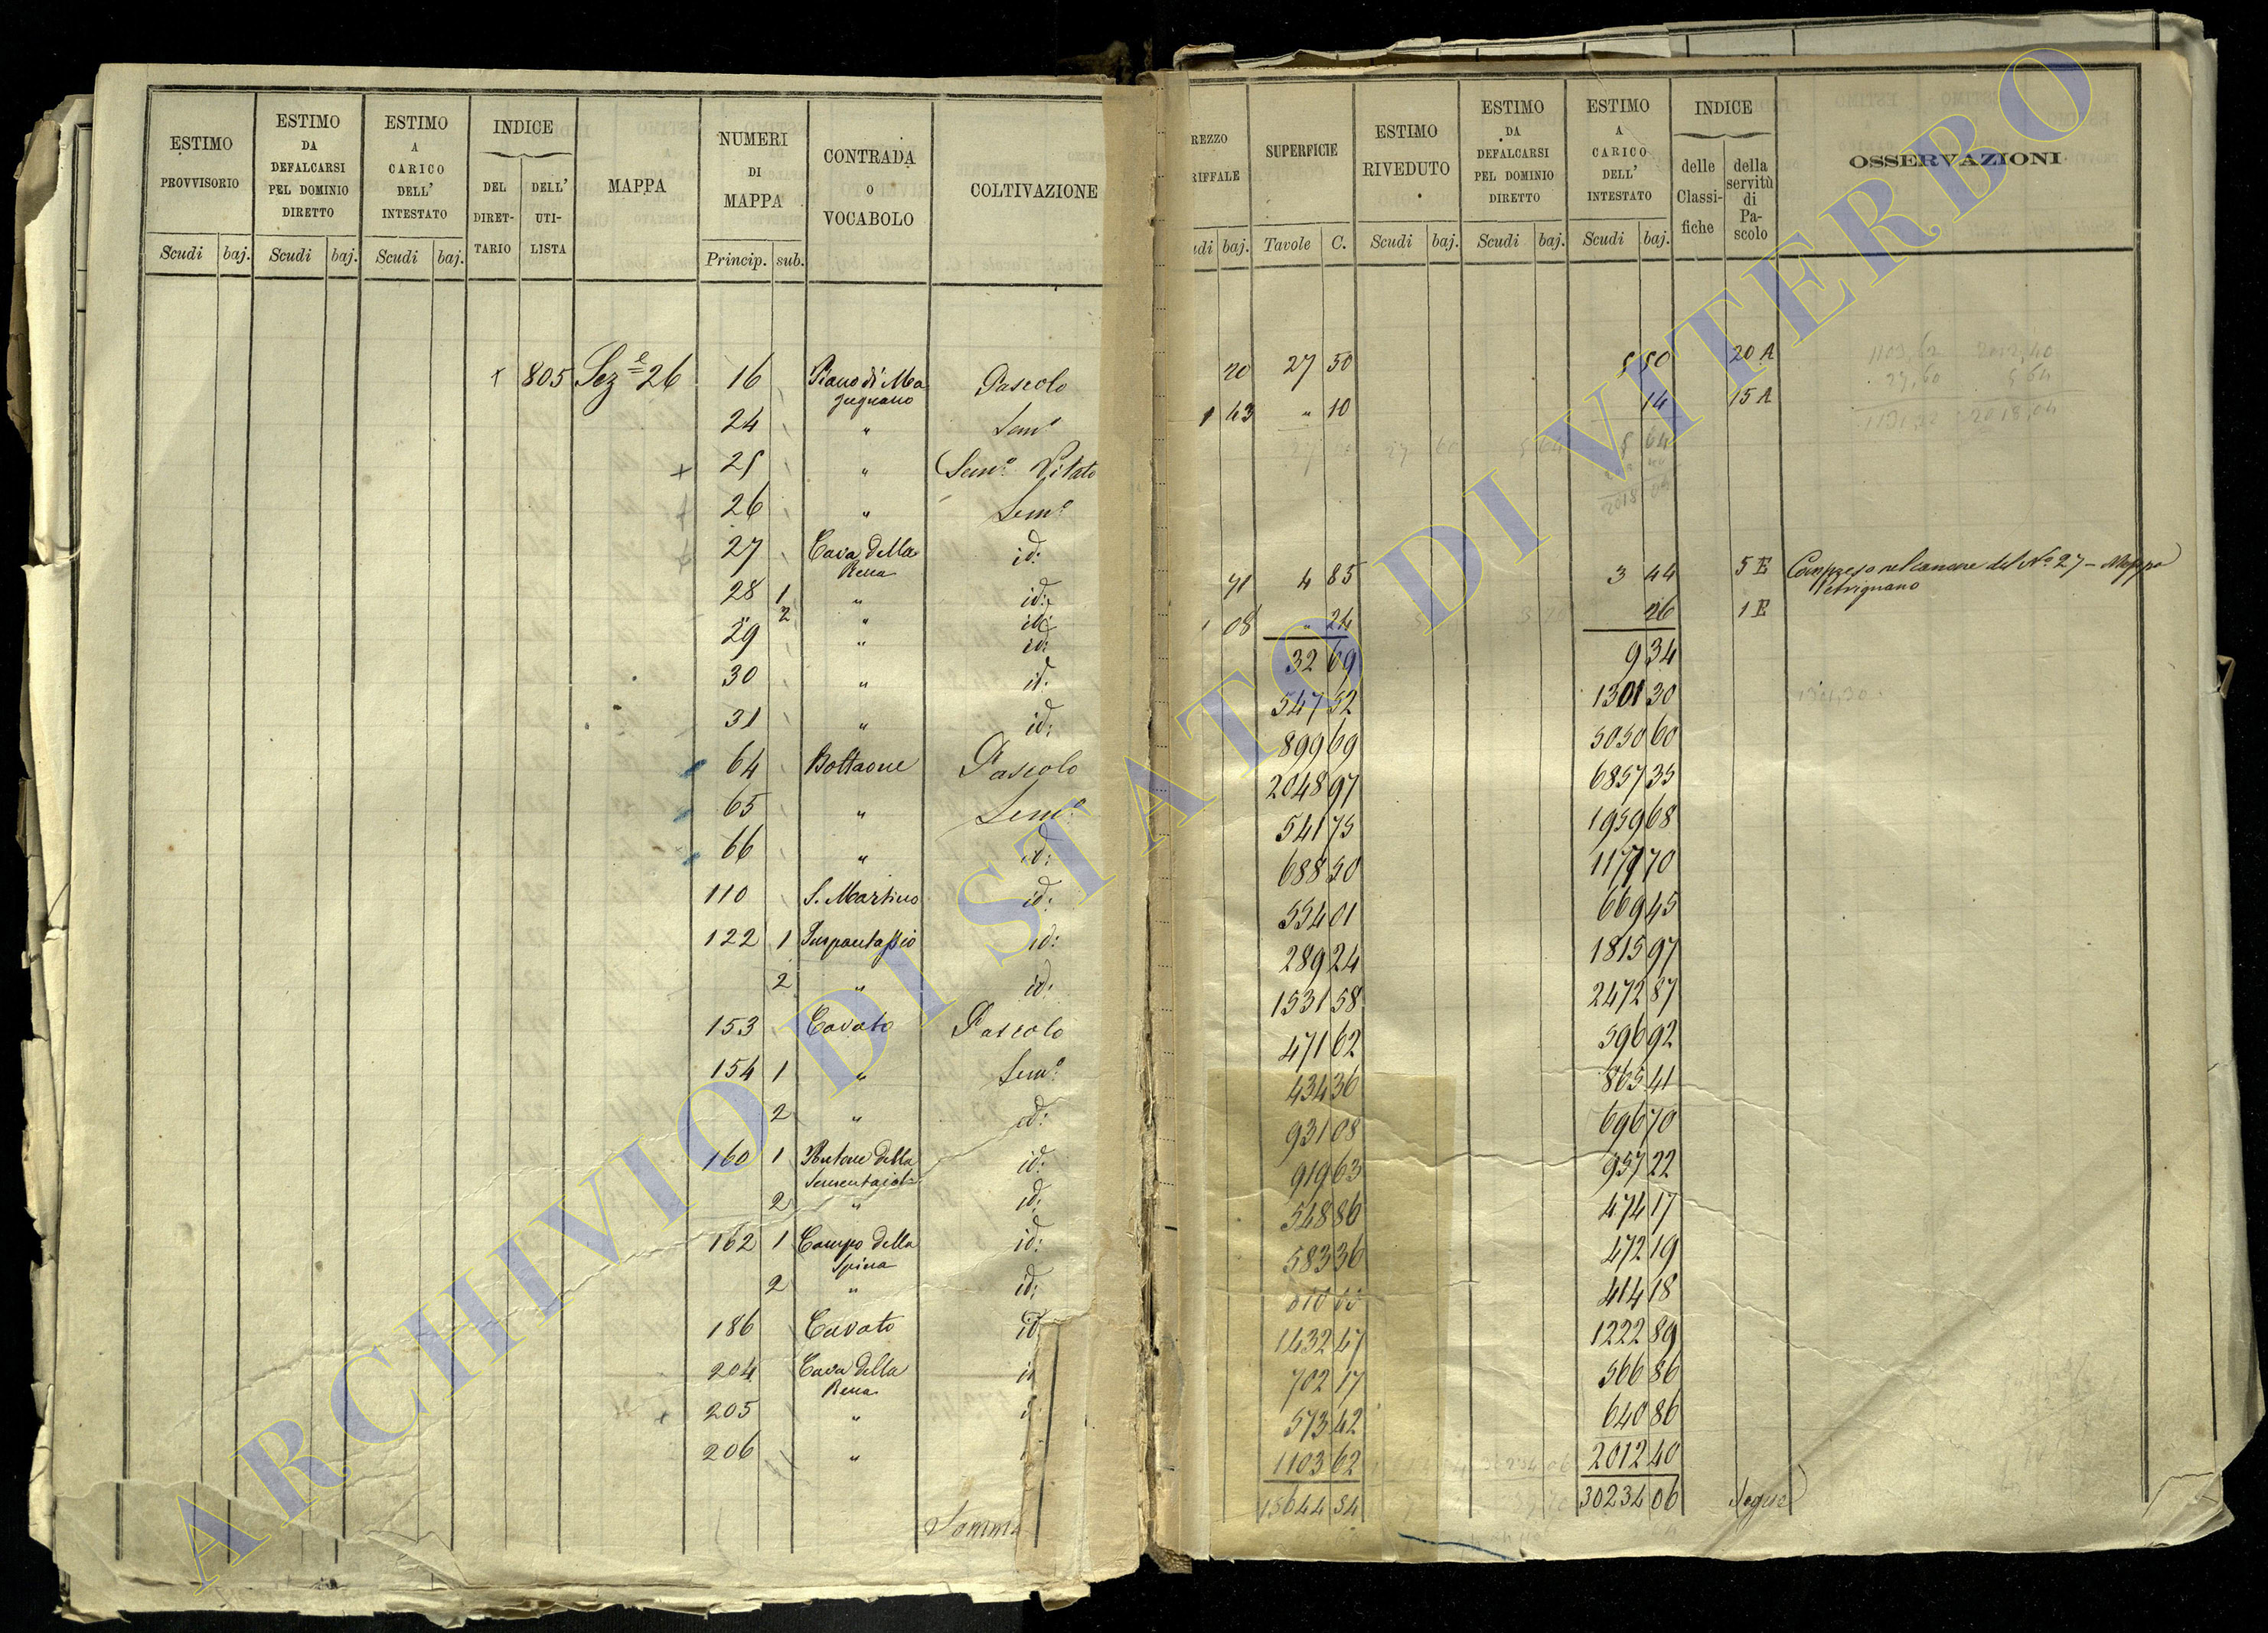 ESTIMO PROVVISORIO
ESTIMO DA DEFALCARSI PEL DOMINIO DIRETTO
ESTIMO A CARICO DELL' INTESTATO
INDICE
DEL DIRETTARIO
DELL' UTILISTA
MAPPA
NUMERI DI MAPPA
CONTRADA O VOCABOLO
COLTIVAZIONE
Scudi baj. Scudi baj. Scudi baj. Princip. sub.
805 Sez.e 26 16 Piano di Ma Pascolo
gugnano
24 " Sem.o
25 " Sem.o Vitato
26 " Sem.o
27 Cava della id:
Rena
28 1 " id:
2 " id:
29 " id:
30 " id:
31 " id:
64 Bottaone Pascolo
65 " Sem.o
66 " id:
110 S. Martino id:
122 1 id:
2 " id:
153 Cavato Pascolo
154 1 " Sem.o
2 " id:
160 1 della id:
2 " id:
162 1 Campo della id:
Spina
2 " id:
186 Cavato id
204 Cava della
Rena
205 "
206 "
Somma
REZZO
RIFFALE
SUPERFICIE
ESTIMO RIVEDUTO
ESTIMO DA DEFALCARSI PEL DOMINIO DIRETTO
ESTIMO A CARICO DELL' INTESTATO
INDICE
delle Classifiche
della servitù di Pascolo
OSSERVAZIONI
udi baj. Tavole C. Scudi baj. Scudi baj. Scudi baj.
20 27 50 5 50 20 A
1 43 " 10 14 15 A
5 64
71 4 85 3 44 5 E Compreso nel canone del No 27 - Mappa
Petrignano
08 " 24 26 1 E
32 69 9 34
547 52 1301 30
899 69 5050 60
2048 97 6857 35
541 75 1959 68
688 50 1177 70
554 01 669 45
289 24 1815 97
1531 58 2472 87
471 62 596 92
434 36 865 41
931 08 696 70
919 63 957 22
548 86 474 17
583 36 472 19
414 18
1432 47 1222 89
702 17 566 86
573 42 640 86
1103 62 2012 40
15644 54 30234 06 Segue
ARCHIVIO DI STATO DI VITERBO